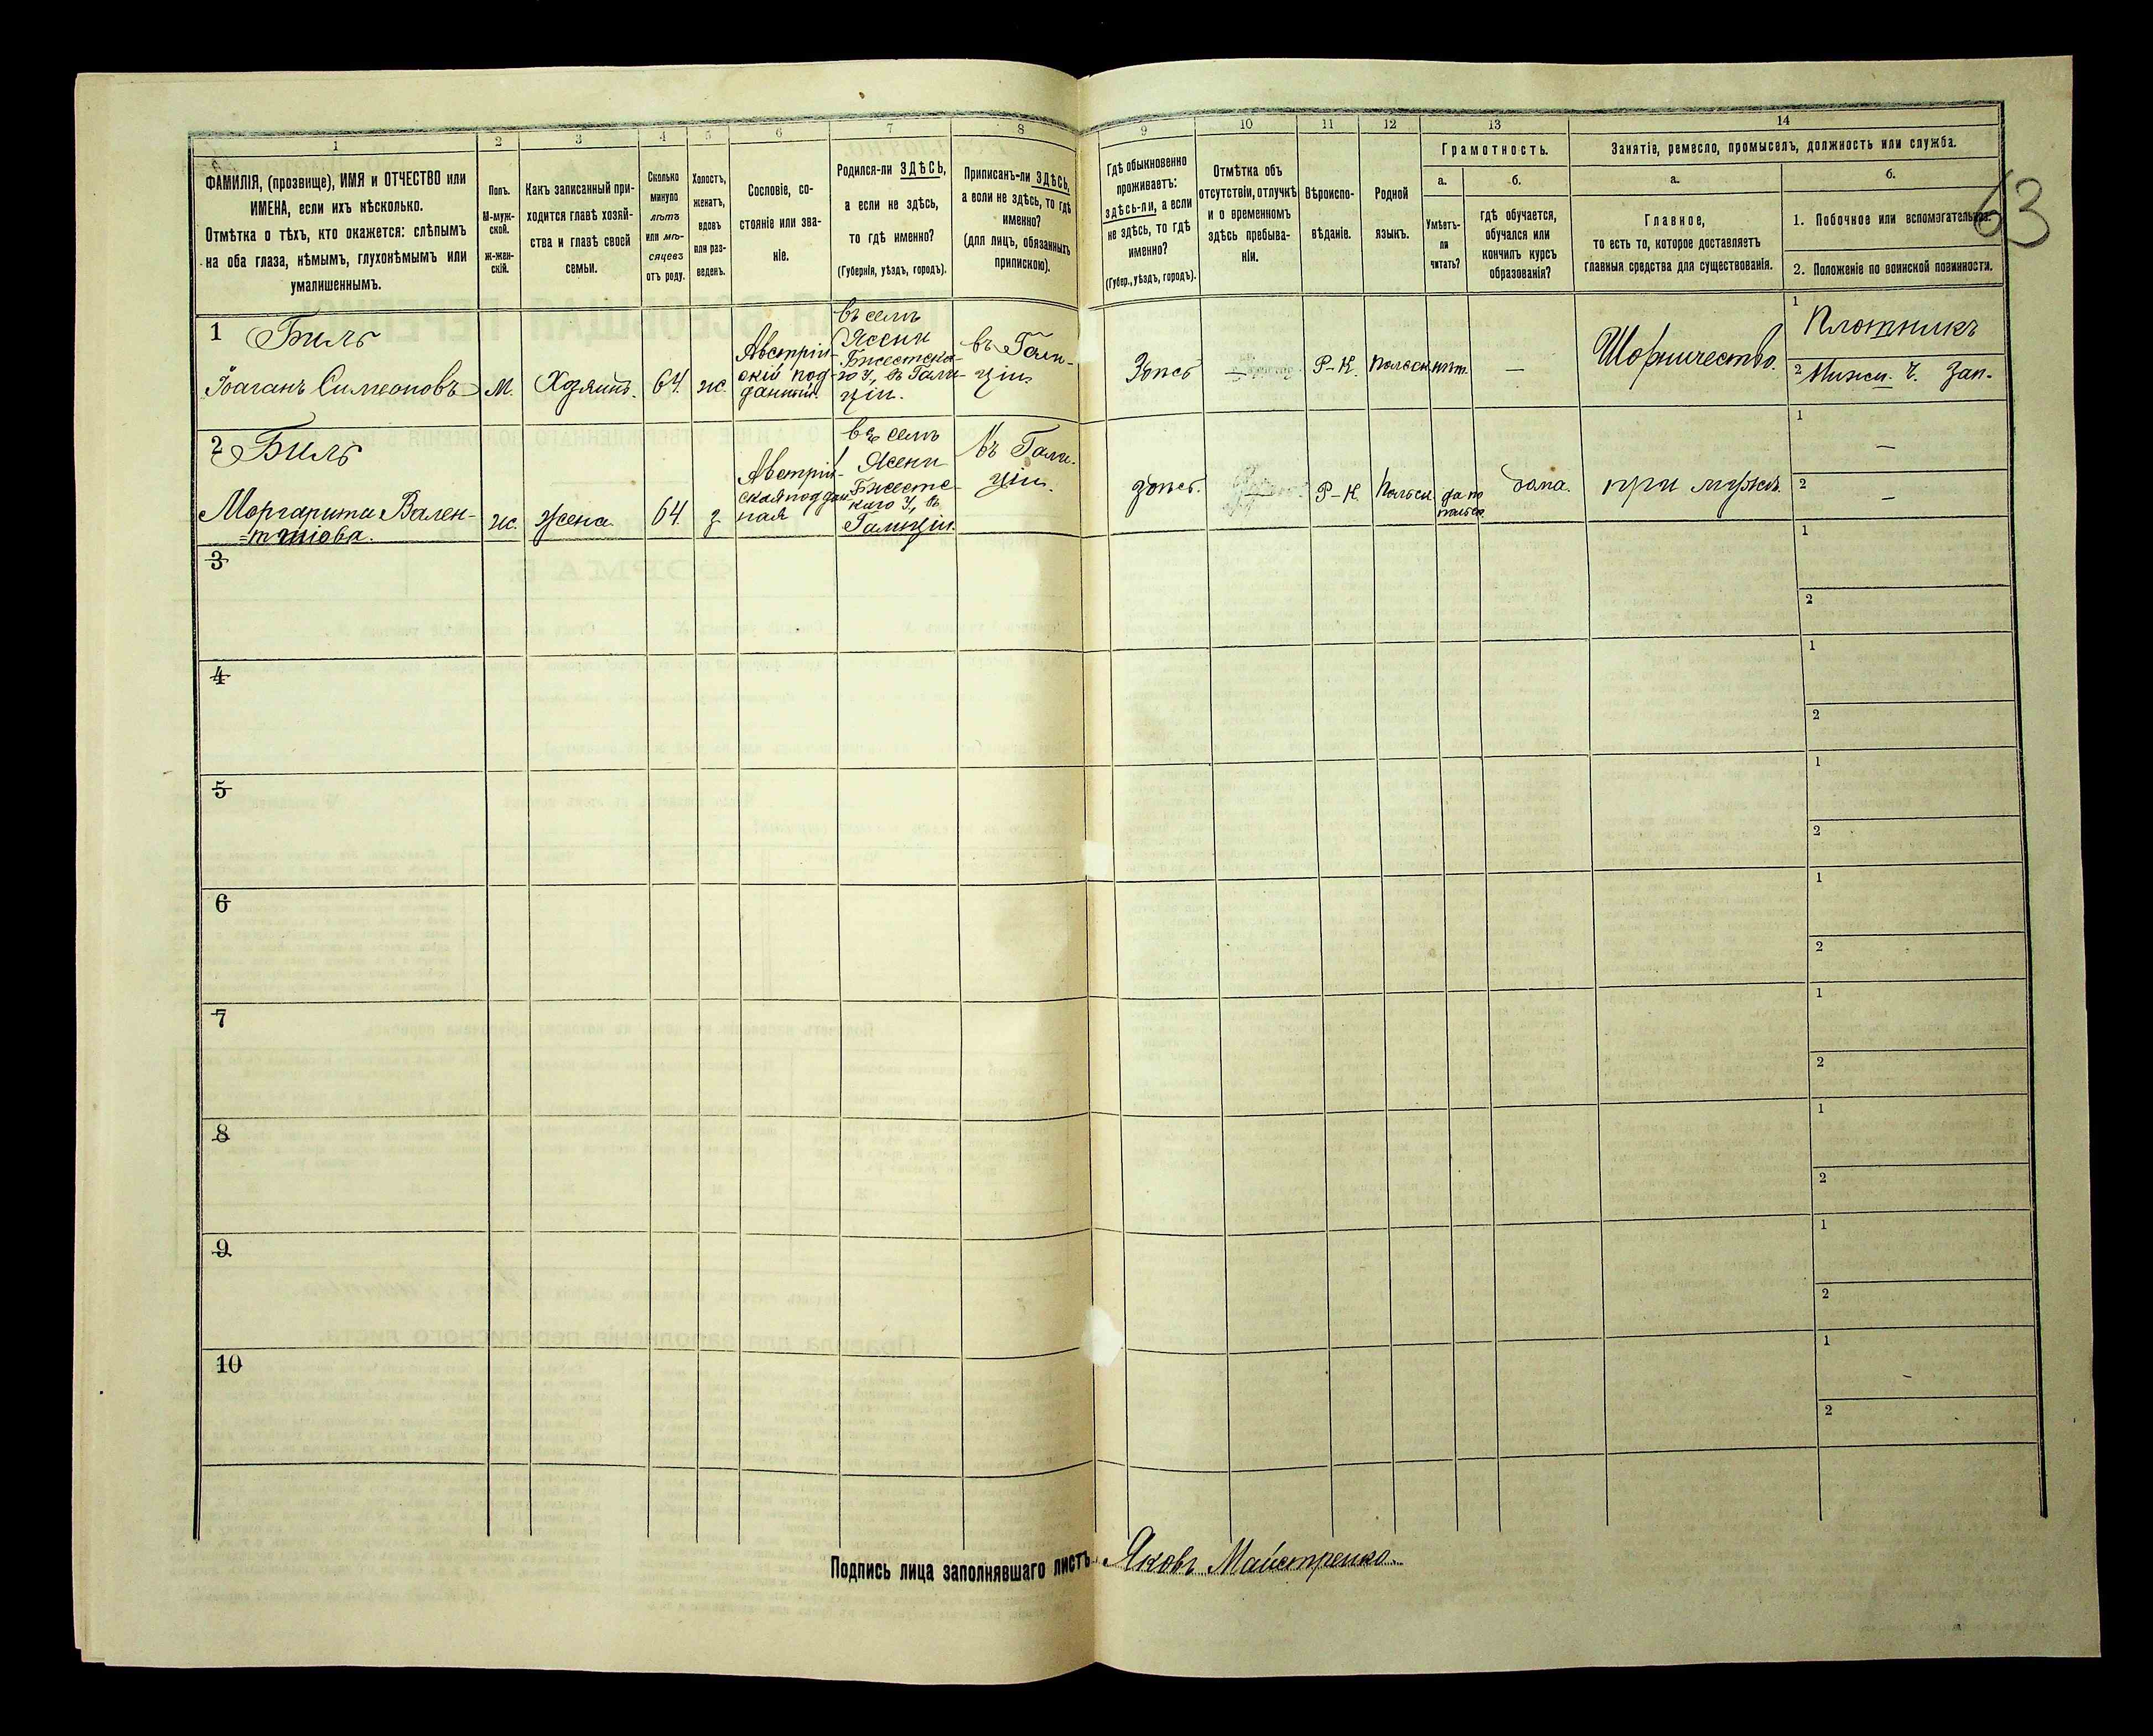 1
2
3
4
5
6
7
8
9
10
11
12
13
14
ФАМИЛІЯ, (прозвище), ИМЯ и ОТЧЕСТВО или
ИМЕНА, если ихъ нѣсколько.
Отмѣтка о тѣхъ, кто окажется: слѣпымъ
на оба глаза, нѣмымъ, глухонѣмымъ или
умалишеннымъ.
Полъ.
М-муж-
ской.
Ж-жен-
скій.
Какъ записанный при-
ходится главѣ хозяй-
ства и главѣ своей
семьи.
Сколько
минуло
лѣтъ
или мѣ-
сяцевъ
отъ роду.
Холостъ,
женатъ,
вдовъ
или раз-
веденъ.
Сословіе, со-
стояніе или зва-
ніе.
Родился-ли ЗДѢСЬ,
а если не здѣсь,
то гдѣ именно?
(Губернія, уѣздъ, городъ).
Приписанъ-ли ЗДѢСЬ,
а если не здѣсь, то гдѣ
именно?
(для лицъ, обязанныхъ
припискою).
Гдѣ обыкновенно
проживаетъ:
здѣсь-ли, а если
не здѣсь, то гдѣ
именно?
(Губер., уѣздъ, городъ).
Отмѣтка объ
отсутствіи, отлучкѣ
и о временномъ
здѣсь пребыва-
ніи.
Вѣроиспо-
вѣданіе.
Родной
языкъ.
Грамотность.
а.
Умѣетъ-
ли
читать?
б.
гдѣ обучается,
обучался или
кончилъ курсъ
образованія?
Занятіе, ремесло, промыселъ, должность или служба.
а.
Главное,
то есть то, которое доставляетъ
главныя средства для существованія.
б.
1. Побочное или вспомогательное.
2. Положеніе по воинской повинности.
63
1
Биль
Іоаганъ Симеоновъ
М.
Хозяинъ.
64.
ж.
Австрій-
скій под-
данный.
въ селѣ
Ясени
Бжестска-
го У., въ Гали-
ціи.
въ Гали-
ціи
Здѣсь
—
Р-К.
Польск.
нѣт.
—
Шорничество.
1
Плотникъ
2
Нижн. Ч. Зап.
2
Биль
Маргарита Вален-
=тиніова.
ж.
жена.
64.
з
Австрій-
ская поддан
ная
въ селѣ
Ясени
Бжестс-
каго У., въ
Галиціи.
Въ Гали-
ціи.
здѣсь.
Р-К
Польск
да по
польск.
дома.
при мужѣ.
1
—
2
—
3
1
2
4
1
2
5
1
2
6
1
2
7
1
2
8
1
2
9
1
2
10
1
2
Подпись лица заполнявшаго листъ Яковъ Майстренко.